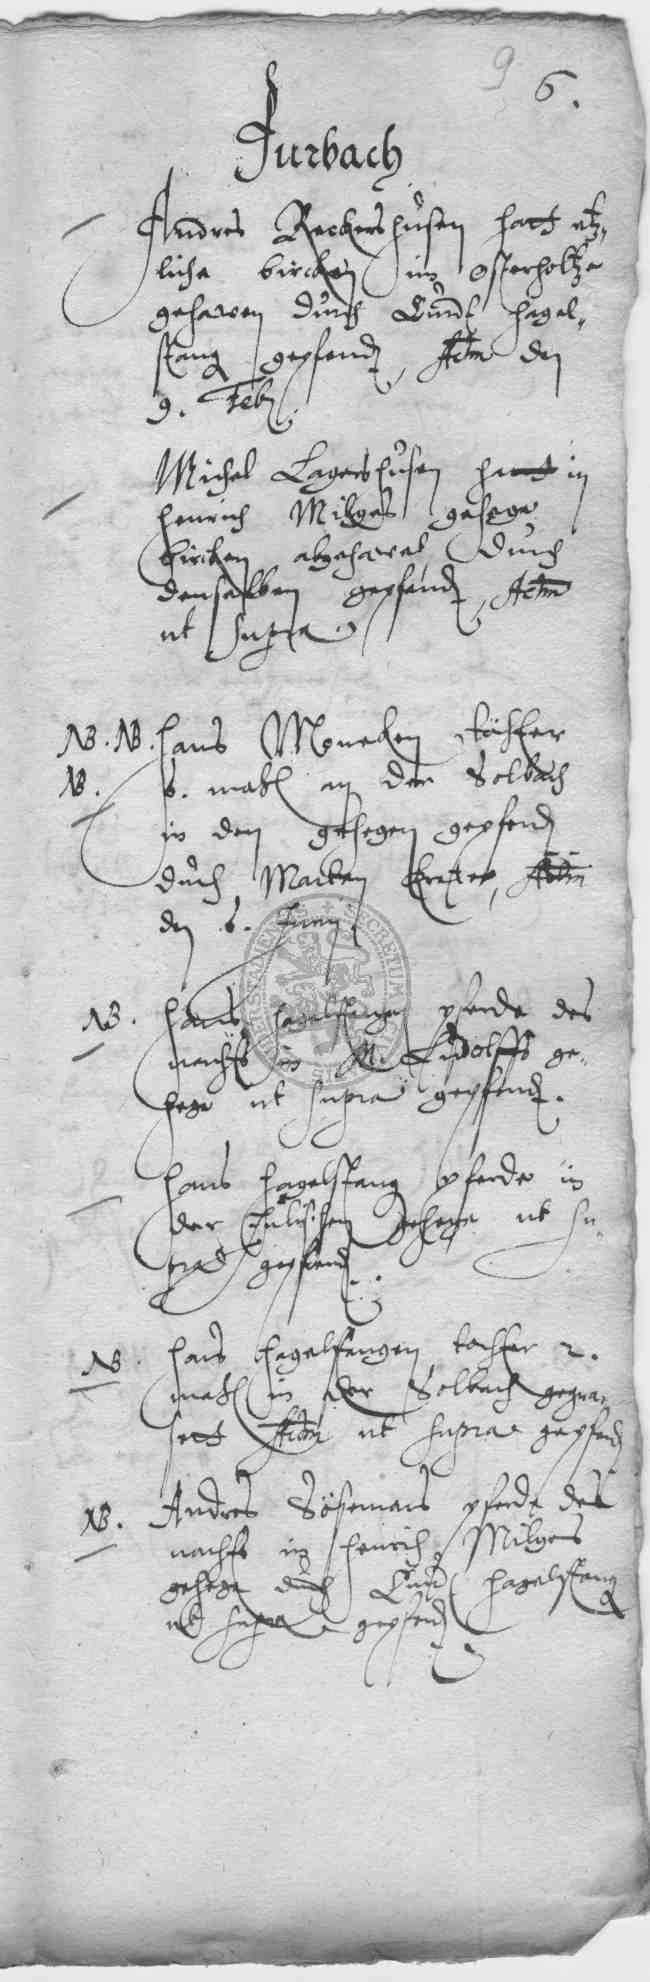 9
6.
Jurbach
Andres Reckershusen hatt etz-
liche bircken im Osterholtze
gehawen durch Curdt Hagel-
stang gepfend, Actm den
9. Feb.
Michel Lagershusen hatt in
Henrich Milges gehege
bircken abgehawet, durch
denselben gepfend, Actm
ut supra.
NB. NB. Hans Moneken tochter
NB. 6. mahl an der Solbach
in den gehegen gepfend
durch Marten, Actm
den 6. Juny.
NB. Hans Hagelstangen pferde des
nachts in M. Ludolffs ge-
hege ut supra gepfend.
Hans Hagelstang pferde in
der gehege ut su-
pra gepfend.
NB. Hans Hagelstangen tochter 2.
mahl in der Solbach gegra-
sett Actm ut supra gepfend
NB. Andres Sösemans pferde des
nachts in Henrich Milges
gehege durch Curd Hagelstang
ut supra gepfend.
SECRETUM